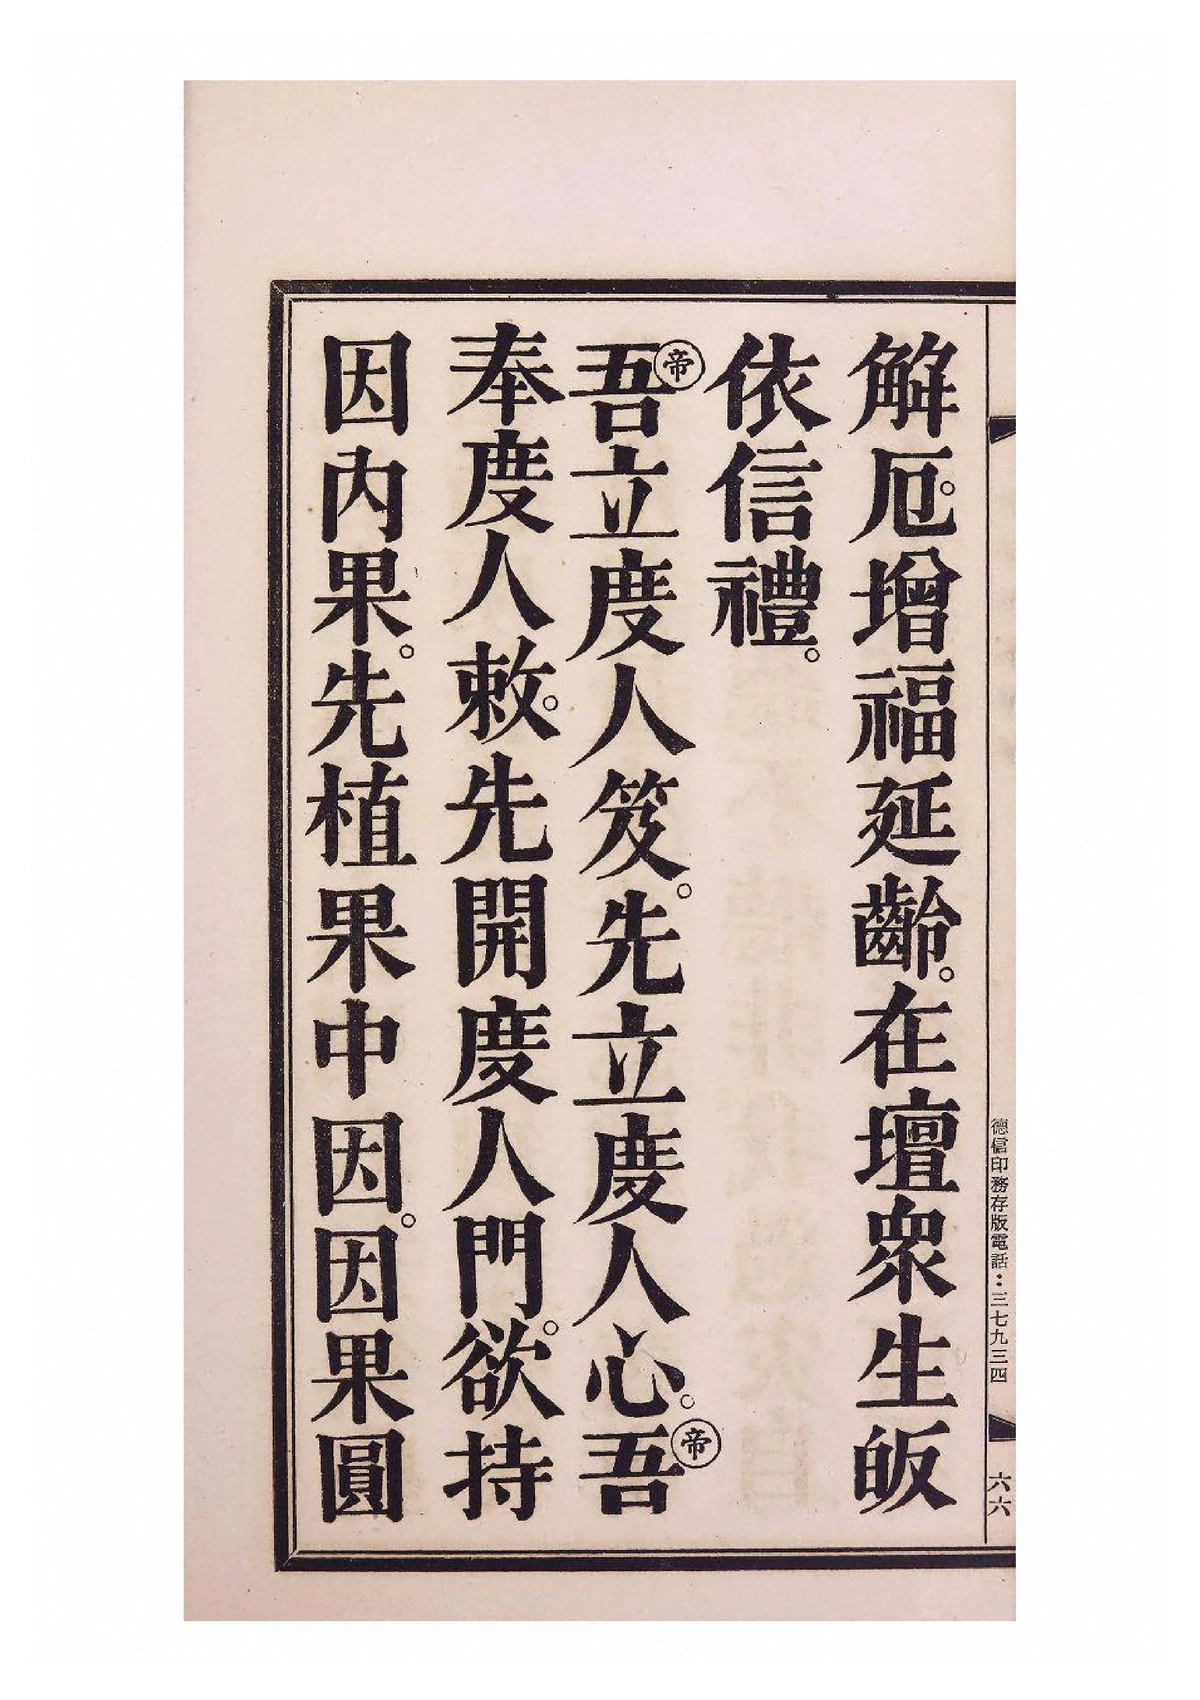 解厄。增福延齡。在壇衆生皈
依信禮。
帝
吾立度人笈。先立度人心。吾
帝
奉度人敕。先開度人門。欲持
因內果。先植果中因。因果圓
德信印務存版電話：三七九三四
六六